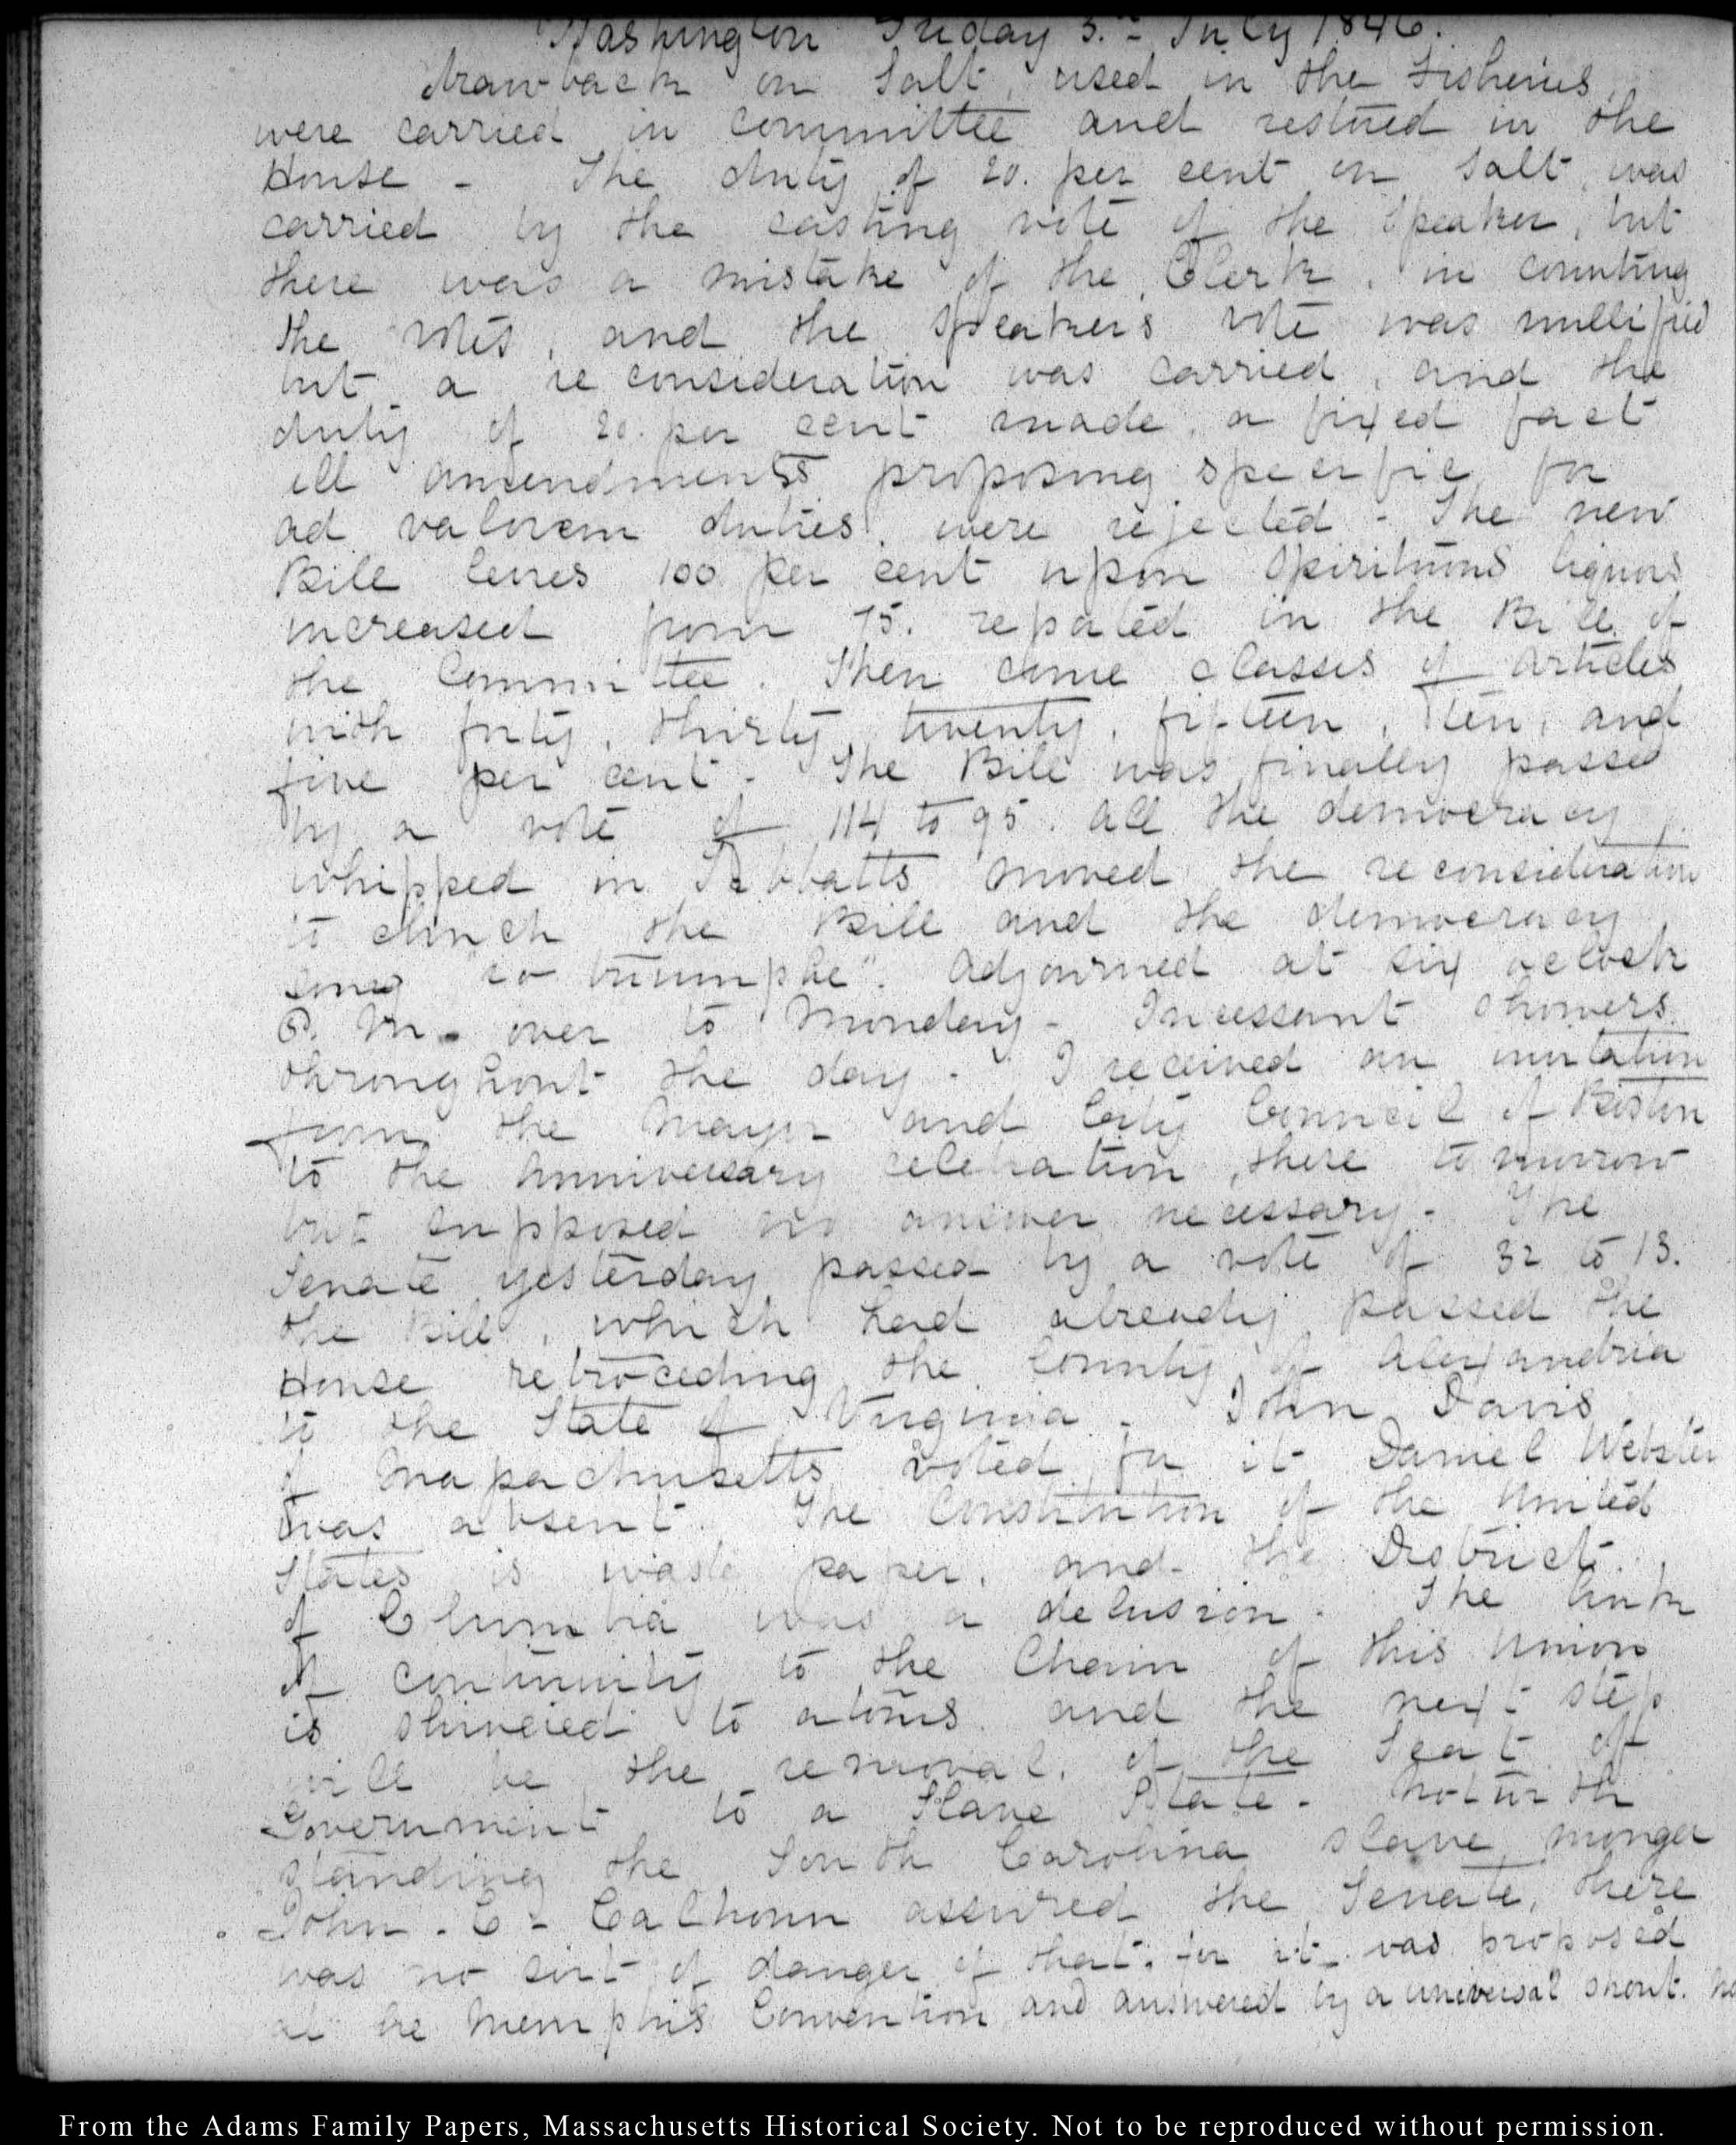 Washington Friday 3.d July 1846.
drawback on Salt, used in the Fisheries,
were carried in committee and restored in the
House - The duty of 20. per cent on Salt, was
carried by the casting vote of the Speaker, but
there was a mistake of the Clerk, in counting
the votes, and the Speakers vote was nullified
but a reconsideration was carried, and the
duty of 20. per cent made, a fixed fact
all amendments proposing specific for
ad valorem duties, were rejected - The new
Bill levies 100 per cent upon Spirituous liquors
increased from 75. reported in the Bill of
the Committee. Then come classes of articles
with forty, thirty, twenty, fifteen, ten, and
five per cent - The Bill was finally passed
by a vote of 114 to 95. all the democracy
whipped in Tibbatts moved the reconsideration
to clinch the Bill and the democracy
sung "io triumphe". Adjourned at six oclock
P. M. over to Monday - Incessant showers
throughout the day - I received an invitation
from the Mayor and City Council of Boston
to the Anniversary celebration, there tomorrow
but supposed no answer necessary - The
Senate yesterday passed by a vote of 32 to 13.
the Bill, which had already passed the
House retroceding the County of Alexandria
to the State of Virginia - John Davis
of Massachusetts voted for it Daniel Webster
was absent. The Constitution of the United
States is waste paper, and the District
of Columbia was a delusion - The link
of continuity to the Chain of this Union
is shivered to atoms and the next step
will be the removal, of the Seat of
Government to a Slave State - notwith
standing the South Carolina slave monger
John - C - Calhoun assured the Senate, there
was no sort of danger of that; for it was proposed
at the Memphis Convention and answered by a universal shout. No